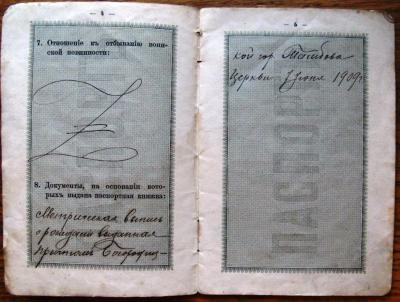 4
7. Отношеніе къ отбыванію воин-
ской повинности:
8. Документы, на основаніи кото-
рыхъ выдана паспортная книжка:
Метрическая выпись
о рожденіи выданная
причтомъ Богородиц-
5
кой гор. Тамбова
Церкви 7 Іюня 1909 г.
ПАСПОР